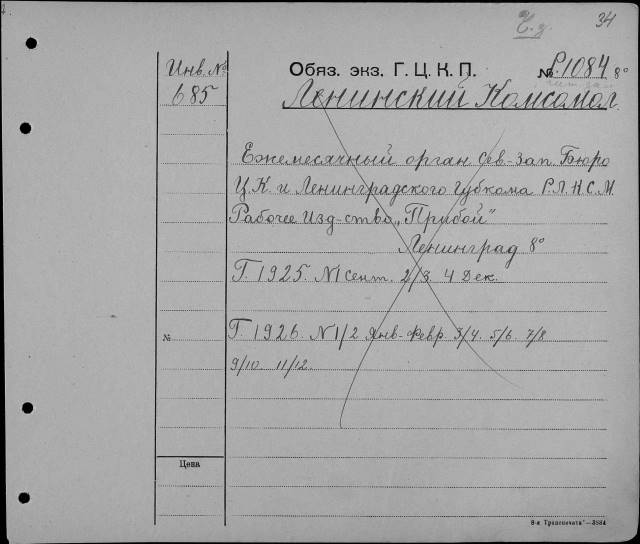 34
Инв. №
685
Обяз. экз. Г. Ц. К. П. № Р.1084 8°
Ленинский Комсомол.
Ежемесячный орган Сев-Зап. Бюро
Ц.К. и Ленинградского Губкома Р.Л.К.С.М.
Рабочее Изд-ство „Прибой"
Ленинград 8°
Г. 1925. N1 Сент. 2/3. 4 Дек.
№ Г. 1926. N1/2 Янв-Февр. 3/4. 5/6. 7/8
9/10. 11/12.
Цена
8-я Транспечати — 3884